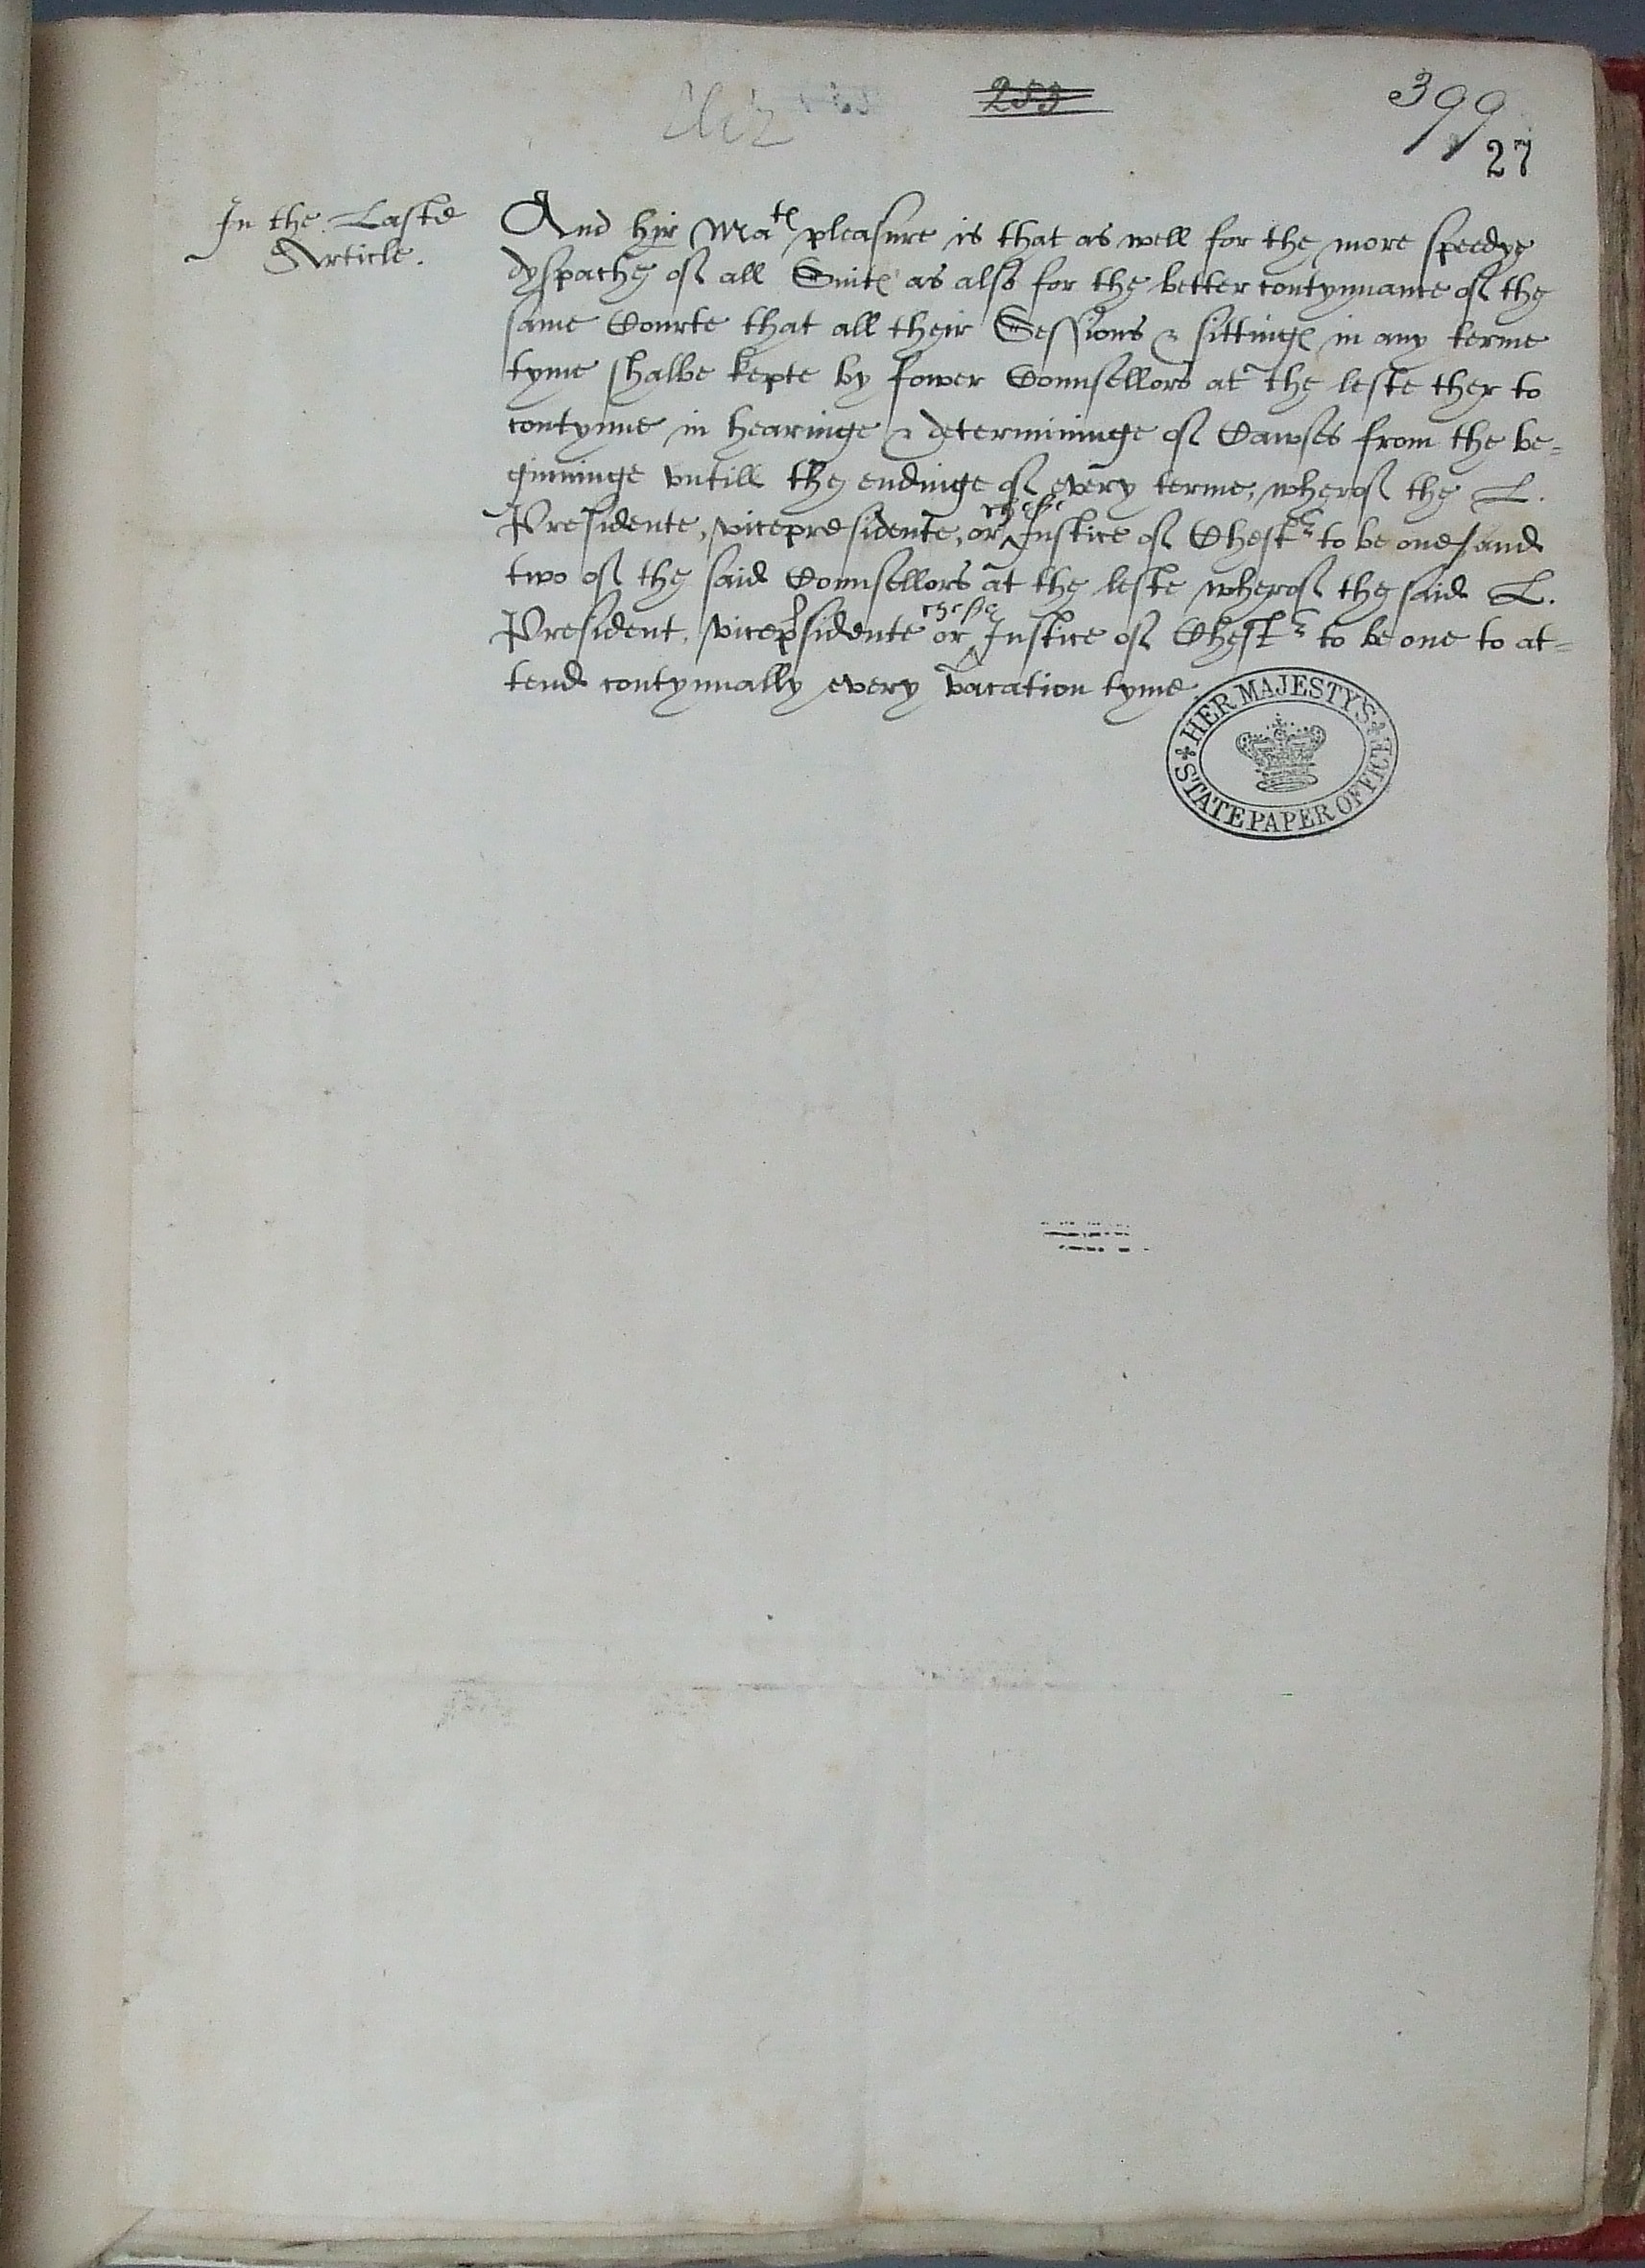 253
399
27
In the Laste
Article.
And hir Ma^te pleasure is that as well for the more speedye
dyspache of all Suites as also for the better contynuance of the
same Courte that all their Sessions & sittinges in any terme
tyme shalbe kepte by fower Counsellors at the leste ther to
contynue in hearinge & determininge of Cawses from the be=
ginninge vntill the endinge of every terme, wherof the L.
Presidente, vicepresidente, or cheife Justice of Chest^r to be one / and
two of the said Counsellors at the leste wherof the said L.
President, vicepsidente or cheife Justice of Chest^r to be one to at=
tend contynually every vacation tyme.
HER MAJESTY'S
STATE PAPER OFFICE